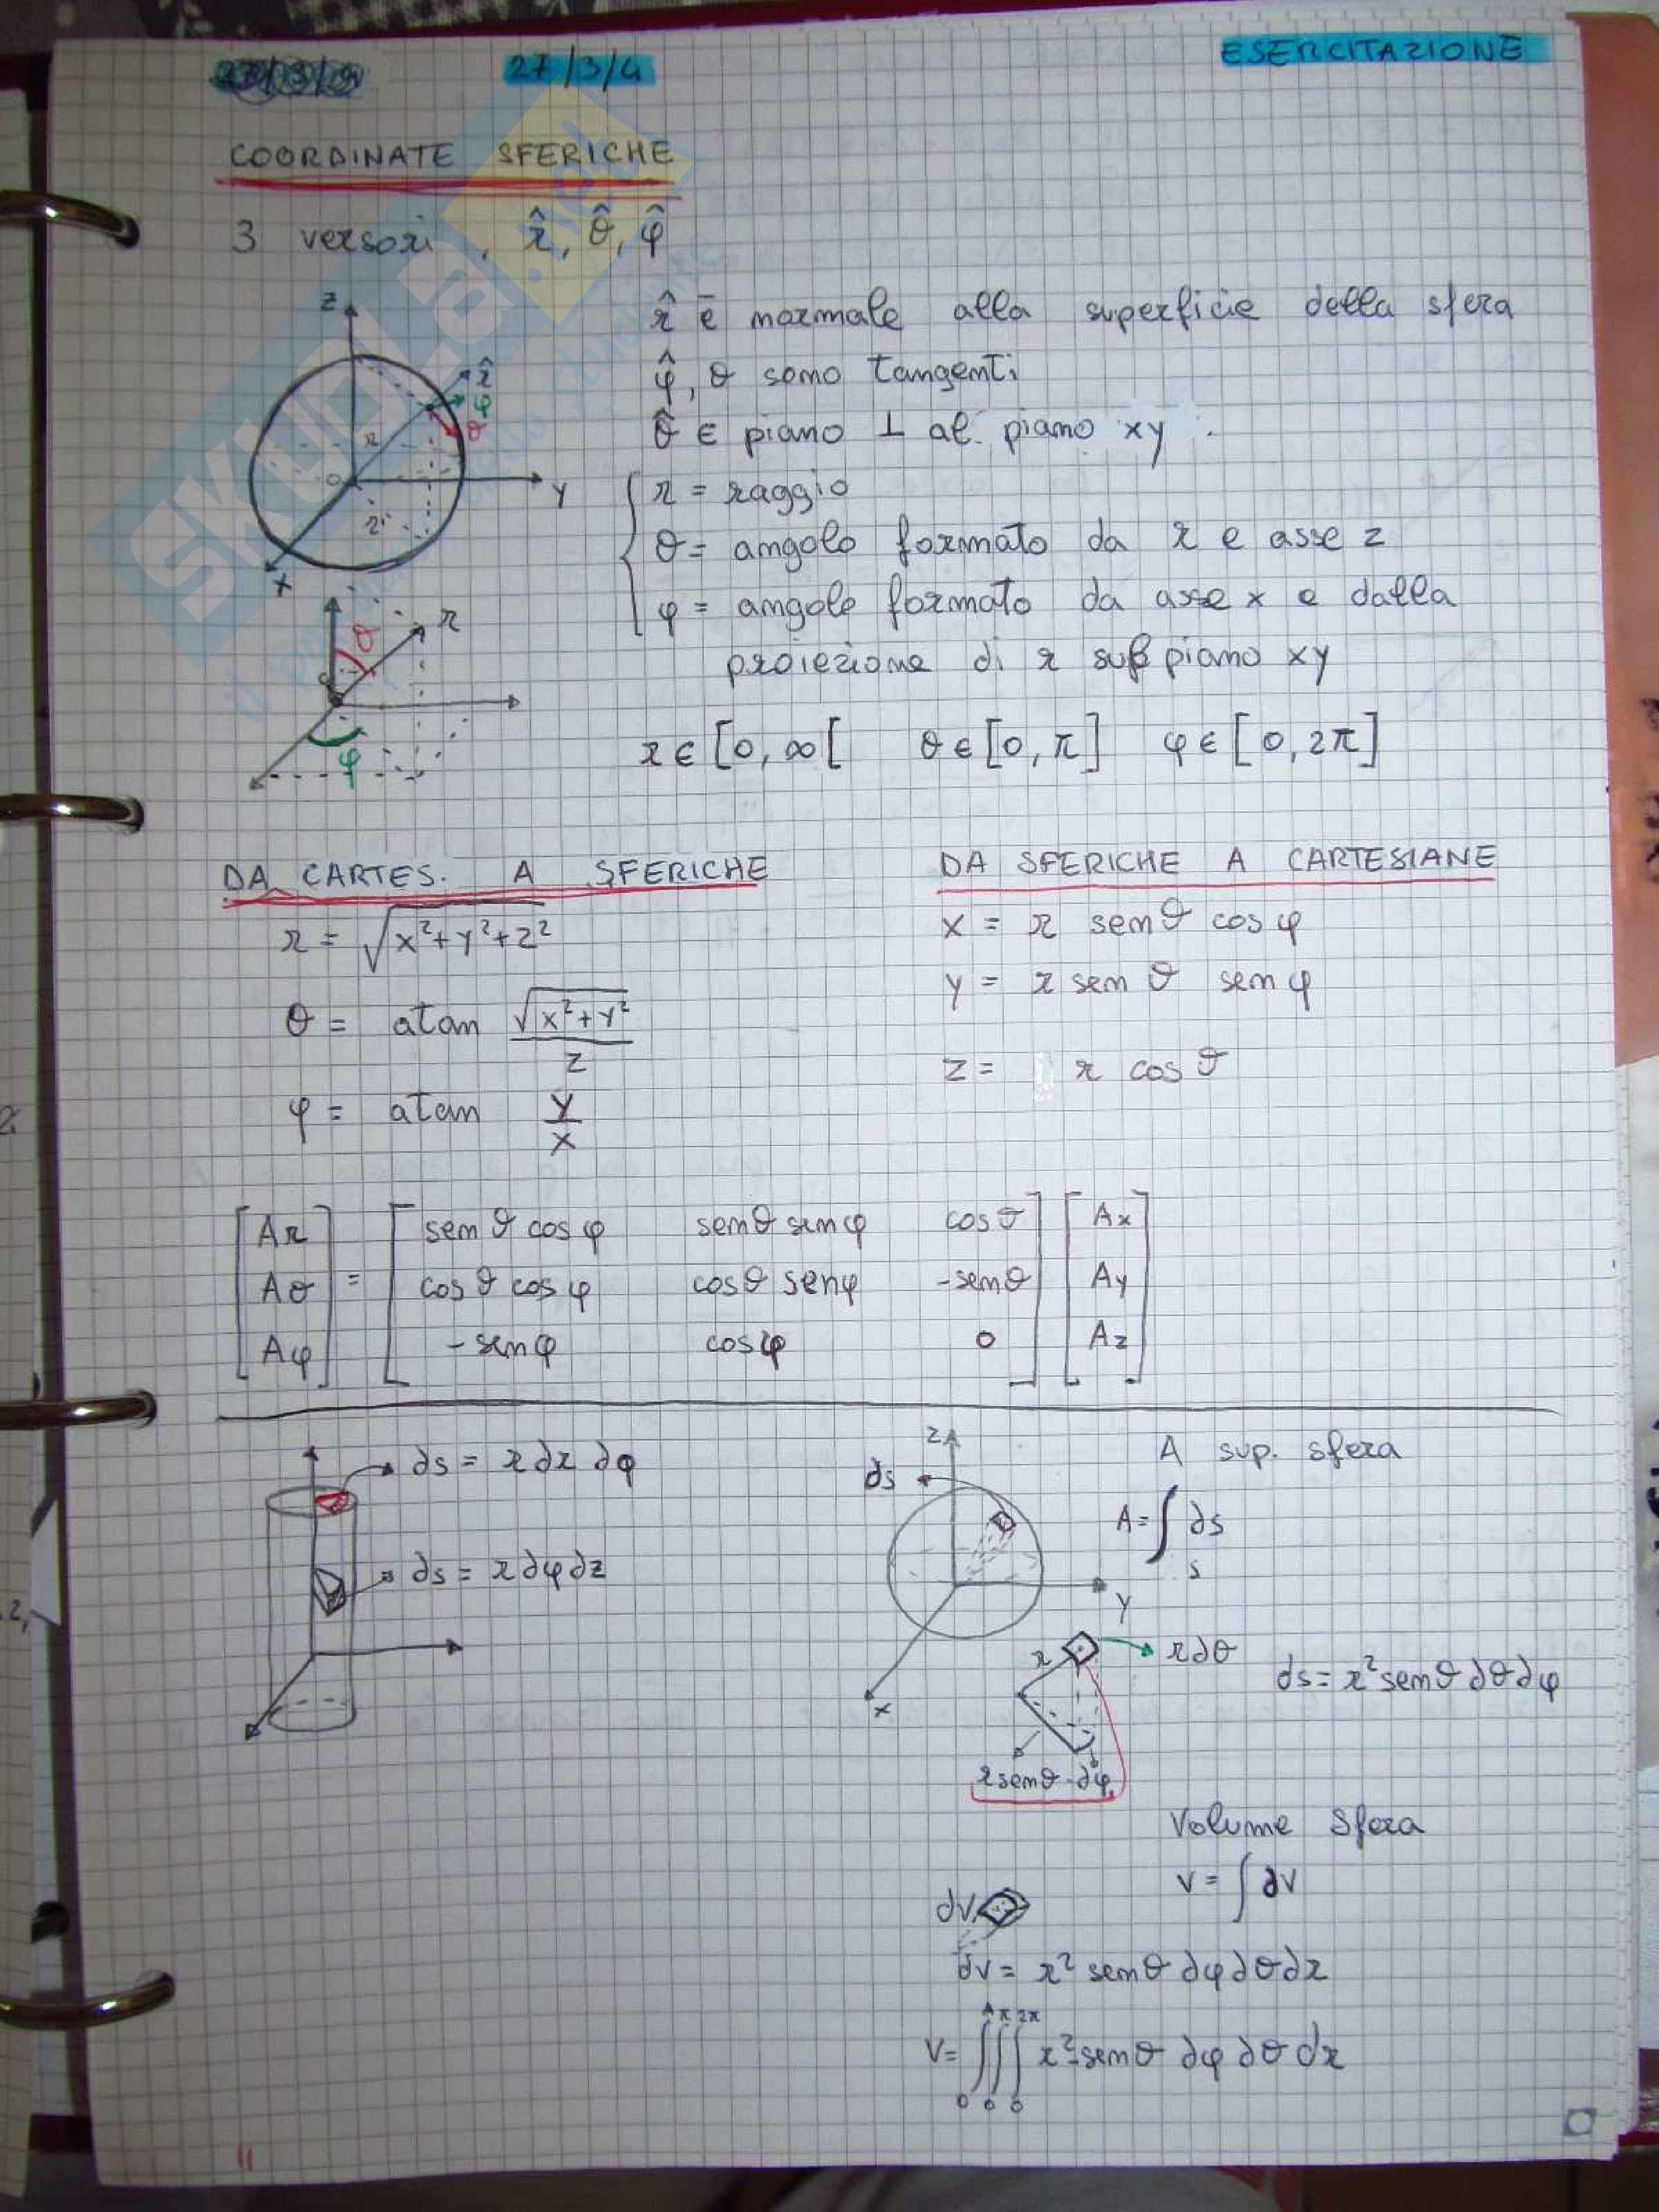 27/3/4
ESERCITAZIONE
COORDINATE SFERICHE
3 versori, r̂, θ̂, φ̂
z
r̂
φ
θ
r
O
y
r'
x
r̂ è normale alla superficie della sfera
φ̂, θ sono tangenti
θ̂ ∈ piano ⊥ al piano xy.
r = raggio
θ = angolo formato da r e asse z
φ = angolo formato da asse x e dalla
proiezione di r sul piano xy
θ
r
φ
r ∈ [0, ∞[ θ ∈ [0, π] φ ∈ [0, 2π]
DA CARTES. A SFERICHE
r = √x²+y²+z²
θ = atan √x²+y² / z
φ = atan y / x
DA SFERICHE A CARTESIANE
x = r senθ cosφ
y = r senθ senφ
z = r cosθ
[Ar] = [senθ cosφ senθ senφ cosθ] [Ax]
[Aθ] [cosθ cosφ cosθ senφ -senθ] [Ay]
[Aφ] [-senφ cosφ 0] [Az]
ds = r dr dφ
ds = r dφ dz
z
ds
y
x
A sup. sfera
A = ∫ ds
S
r
r dθ
ds = r² senθ dθ dφ
r senθ dφ
Volume Sfera
V = ∫ dV
dV
dV = r² senθ dφ dθ dr
A π 2π
V = ∫∫∫ r² senθ dφ dθ dr
0 0 0
11
SKUOLA.net